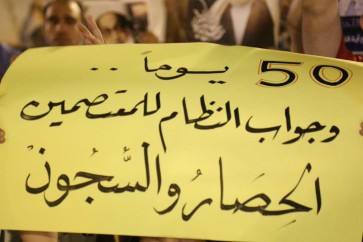 50 يوماً ..
وجواب النظام للمعتصمين
الحصار والسُّجون